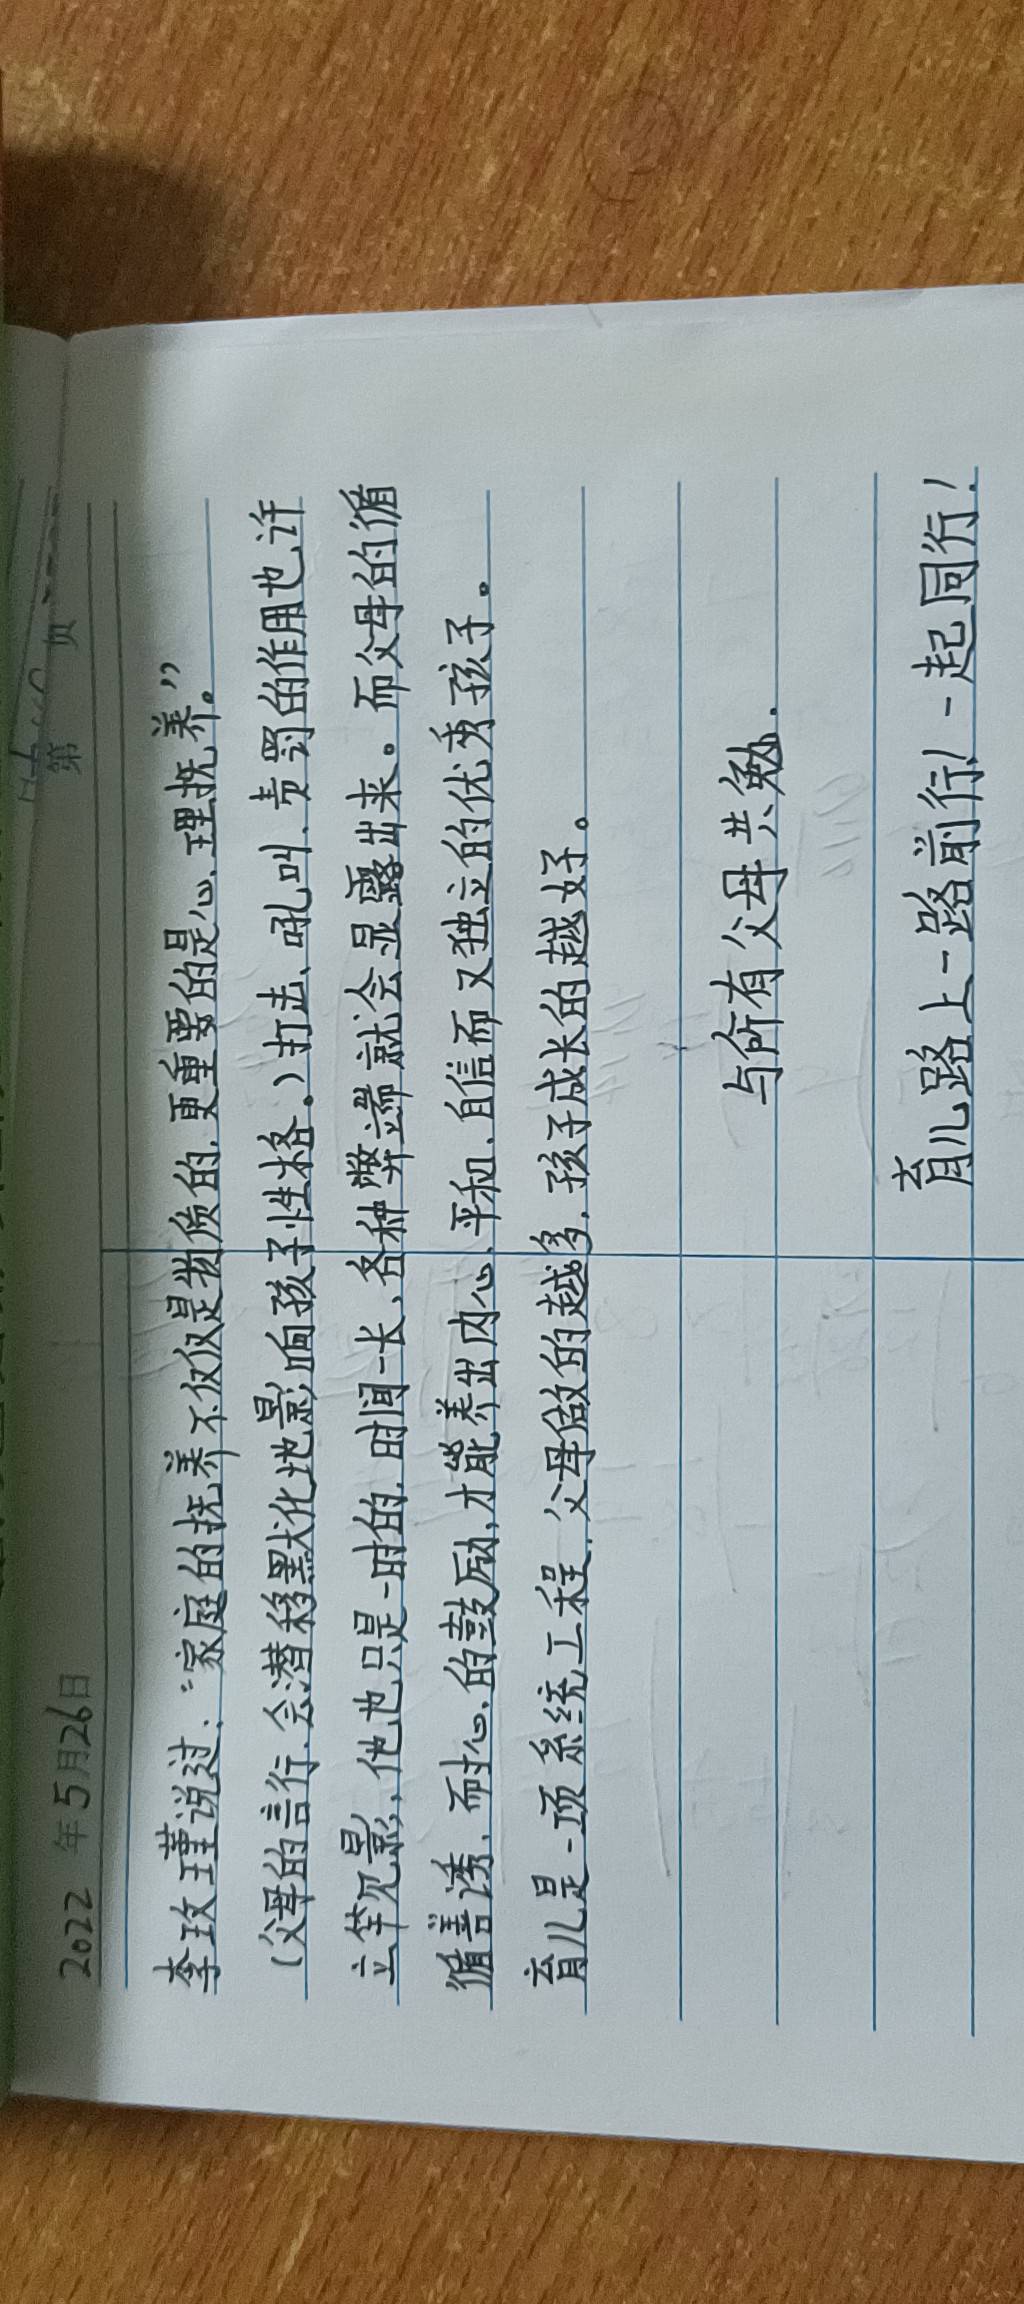 2022 年5月26日
第 页
李玫瑾说过:“家庭的抚养不仅仅是物质的,更重要的是心理抚养。”
(父母的言行,会潜移默化地影响孩子性格。)打击、吼叫、责罚的作用也许
立竿见影,但也只是一时的,时间一长,各种弊端就会显露出来。而父母的循
循善诱、耐心的鼓励,才能养出内心平和、自信而又独立的优秀孩子。
育儿是一项系统工程,父母做的越多,孩子成长的越好。
与所有父母共勉.
育儿路上一路前行!一起同行!